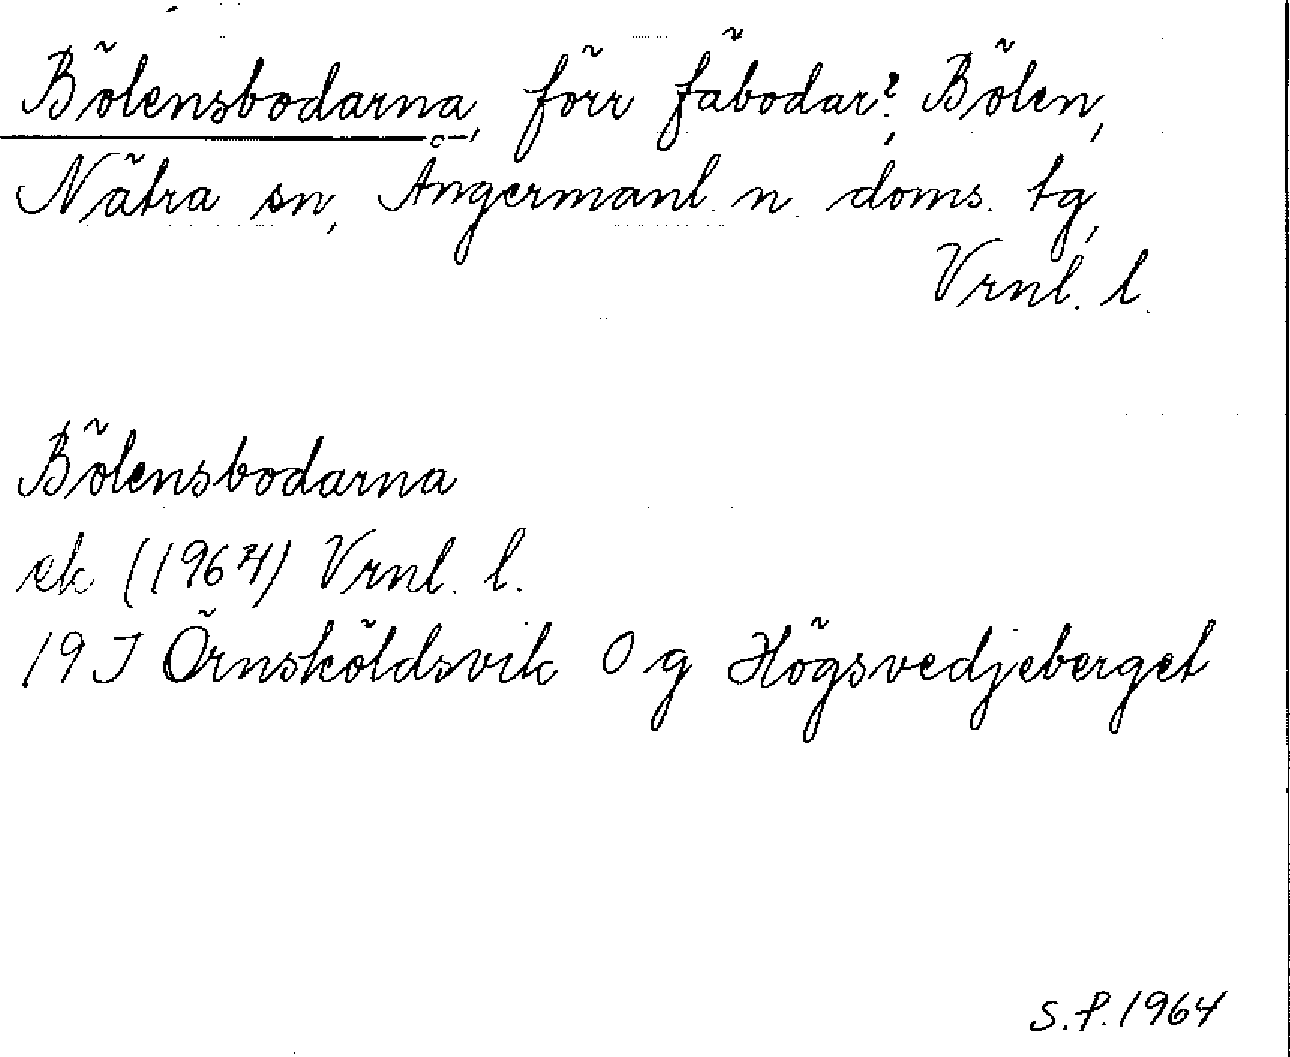 Bölensbodarna, förr fäbodar?, Bölen,
Nätra sn, Ångermanl. n. doms. tg,
Vrnl. l.
Bölensbodarna
ek (1964) Vrnl. l.
19 J Örnsköldsvik 0 g Högsvedjeberget
S.P. 1964